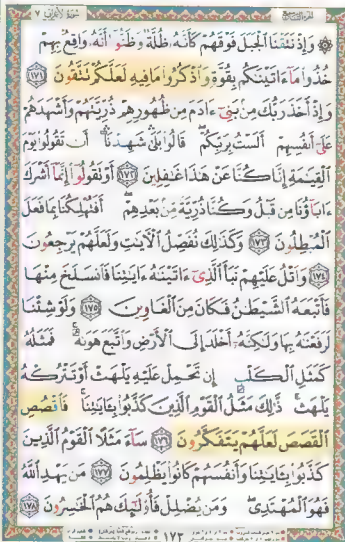 الجزء التاسع
سورة الأعراف ٧
۞ وَإِذْ نَتَقْنَا ٱلْجَبَلَ فَوْقَهُمْ كَأَنَّهُۥ ظُلَّةٌ وَظَنُّوٓا۟ أَنَّهُۥ وَاقِعٌۢ بِهِمْ
خُذُوا۟ مَآ ءَاتَيْنَٰكُم بِقُوَّةٍ وَٱذْكُرُوا۟ مَا فِيهِ لَعَلَّكُمْ تَتَّقُونَ ﴿١٧١﴾
وَإِذْ أَخَذَ رَبُّكَ مِنۢ بَنِىٓ ءَادَمَ مِن ظُهُورِهِمْ ذُرِّيَّتَهُمْ وَأَشْهَدَهُمْ
عَلَىٰٓ أَنفُسِهِمْ أَلَسْتُ بِرَبِّكُمْ ۖ قَالُوا۟ بَلَىٰ ۛ شَهِدْنَآ ۛ أَن تَقُولُوا۟ يَوْمَ
ٱلْقِيَٰمَةِ إِنَّا كُنَّا عَنْ هَٰذَا غَٰفِلِينَ ﴿١٧٢﴾ أَوْ تَقُولُوٓا۟ إِنَّمَآ أَشْرَكَ
ءَابَآؤُنَا مِن قَبْلُ وَكُنَّا ذُرِّيَّةً مِّنۢ بَعْدِهِمْ ۖ أَفَتُهْلِكُنَا بِمَا فَعَلَ
ٱلْمُبْطِلُونَ ﴿١٧٣﴾ وَكَذَٰلِكَ نُفَصِّلُ ٱلْءَايَٰتِ وَلَعَلَّهُمْ يَرْجِعُونَ
﴿١٧٤﴾ وَٱتْلُ عَلَيْهِمْ نَبَأَ ٱلَّذِىٓ ءَاتَيْنَٰهُ ءَايَٰتِنَا فَٱنسَلَخَ مِنْهَا
فَأَتْبَعَهُ ٱلشَّيْطَٰنُ فَكَانَ مِنَ ٱلْغَاوِينَ ﴿١٧٥﴾ وَلَوْ شِئْنَا
لَرَفَعْنَٰهُ بِهَا وَلَٰكِنَّهُۥٓ أَخْلَدَ إِلَى ٱلْأَرْضِ وَٱتَّبَعَ هَوَىٰهُ ۚ فَمَثَلُهُۥ
كَمَثَلِ ٱلْكَلْبِ إِن تَحْمِلْ عَلَيْهِ يَلْهَثْ أَوْ تَتْرُكْهُ
يَلْهَث ۚ ذَّٰلِكَ مَثَلُ ٱلْقَوْمِ ٱلَّذِينَ كَذَّبُوا۟ بِـَٔايَٰتِنَا ۚ فَٱقْصُصِ
ٱلْقَصَصَ لَعَلَّهُمْ يَتَفَكَّرُونَ ﴿١٧٦﴾ سَآءَ مَثَلًا ٱلْقَوْمُ ٱلَّذِينَ
كَذَّبُوا۟ بِـَٔايَٰتِنَا وَأَنفُسَهُمْ كَانُوا۟ يَظْلِمُونَ ﴿١٧٧﴾ مَن يَهْدِ ٱللَّهُ
فَهُوَ ٱلْمُهْتَدِى ۖ وَمَن يُضْلِلْ فَأُو۟لَٰٓئِكَ هُمُ ٱلْخَٰسِرُونَ ﴿١٧٨﴾
١٧٣